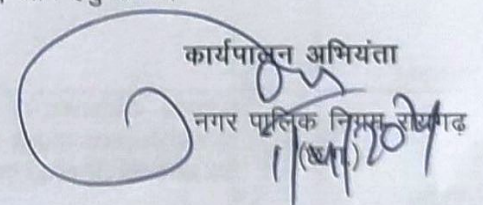 कार्यपालन अभियंता
नगर पालिक निगम रायगढ़
(छ.ग.)